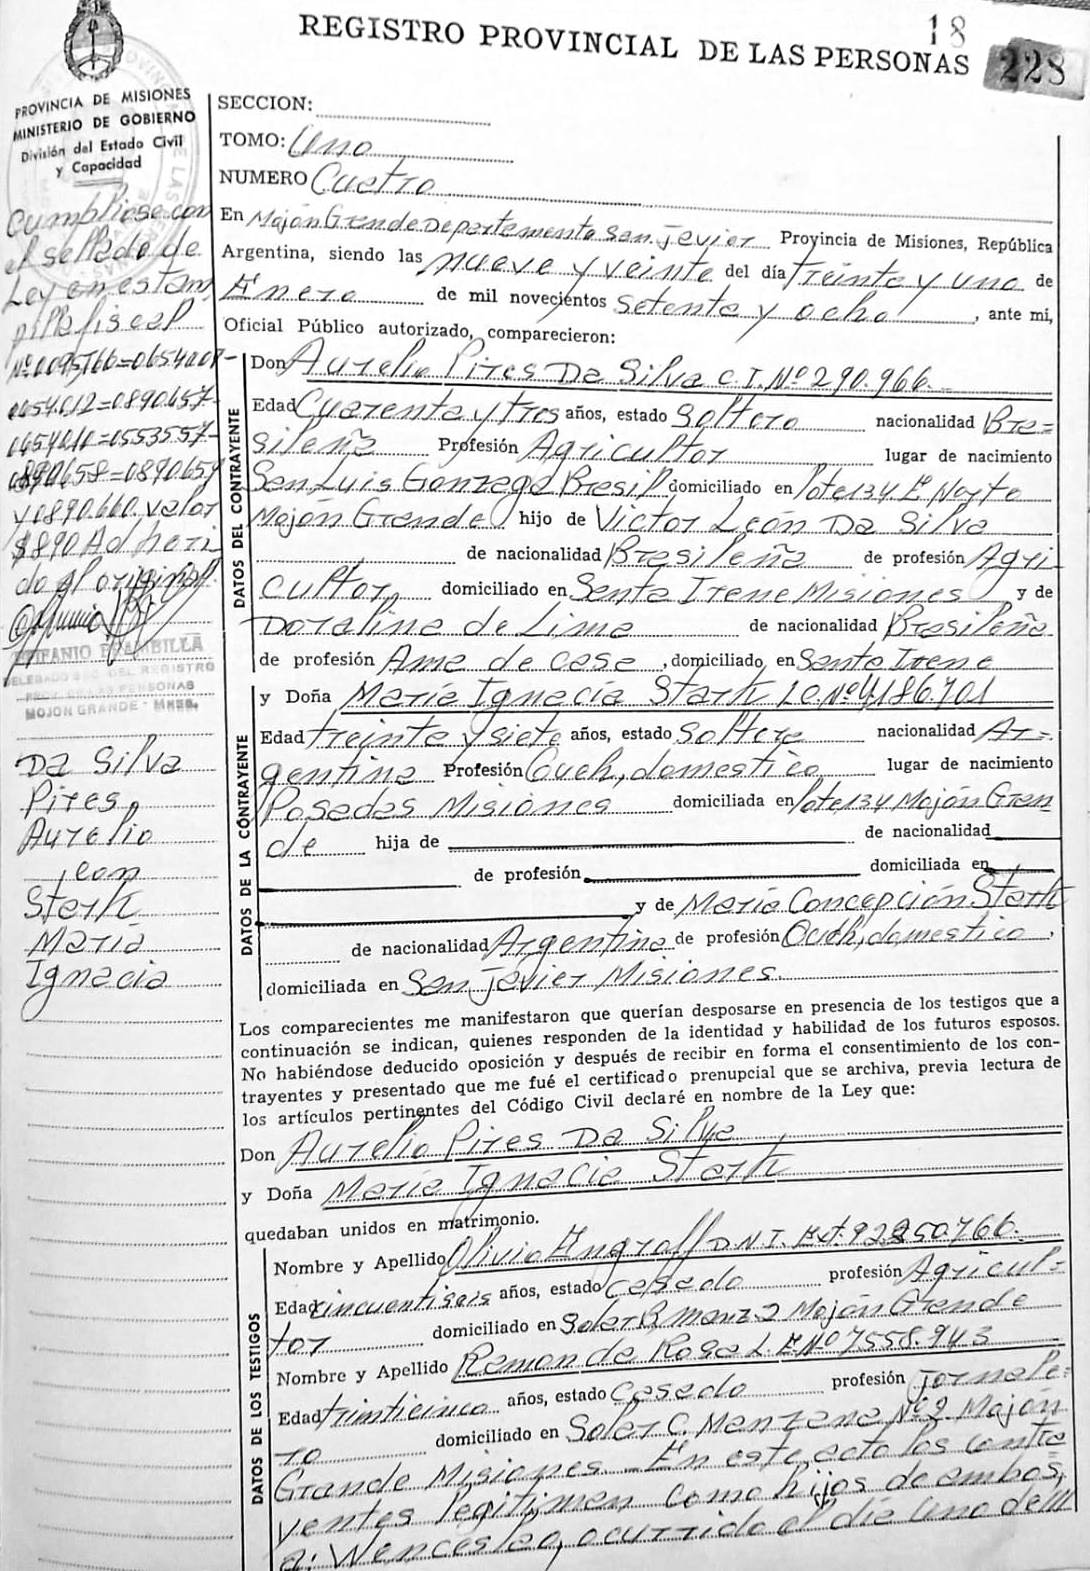 18
REGISTRO PROVINCIAL DE LAS PERSONAS 228
PROVINCIA DE MISIONES
MINISTERIO DE GOBIERNO
División del Estado Civil
y Capacidad
Cumpliose con
el sellado de
Ley en estam
pilla fiscal
0654012=0890657-
0654010=0553557-
0890658=0890659
y 0890.660. valor
$890 Adheri
do al original.
EPIFANIO BRAMBILLA
DELEGADO DEL REGISTRO
PROV. DE LAS PERSONAS
MOJON GRANDE - MNES.
Da Silva
Pires
Aurelio
con
Stark
María
Ignacia
SECCION:
TOMO: Uno
NUMERO Cuatro
En Mojón Grande Departamento San Javier Provincia de Misiones, República
Argentina, siendo las nueve y veinte del día treinta y uno de
Enero de mil novecientos setenta y ocho, ante mi,
Oficial Público autorizado, comparecieron:
DATOS DEL CONTRAYENTE
Don Aurelio Pires Da Silva C.I.Nº 290.966.
Edad Cuarenta y tres años, estado Soltero nacionalidad Bra=
sileña Profesión Agricultor lugar de nacimiento
San Luis Gonzaga Brasil, domiciliado en lote 134 Lº Norte
Mojón Grande hijo de Victor León Da Silva
de nacionalidad Brasileña de profesión Agri
cultor, domiciliado en Santa Irene Misiones y de
Doralina de Lima de nacionalidad Brasileña
de profesión Ama de casa, domiciliado en Santa Irene
DATOS DE LA CONTRAYENTE
y Doña María Ignacia Stark L.C.Nº 4.186.701
Edad treinta y siete años, estado Soltera nacionalidad Ar=
gentina Profesión Queh, domestico lugar de nacimiento
Posadas Misiones domiciliada en lote 134 Mojón Gran
de hija de de nacionalidad
de profesión domiciliada en
y de María Concepción Stark
de nacionalidad Argentina de profesión Queh, domestico,
domiciliada en San Javier Misiones
Los comparecientes me manifestaron que querían desposarse en presencia de los testigos que a
continuación se indican, quienes responden de la identidad y habilidad de los futuros esposos.
No habiéndose deducido oposición y después de recibir en forma el consentimiento de los con-
trayentes y presentado que me fué el certificado prenupcial que se archiva, previa lectura de
los artículos pertinentes del Código Civil declaré en nombre de la Ley que:
Don Aurelio Pires Da Silva
y Doña María Ignacia Stark
quedaban unidos en matrimonio.
DATOS DE LOS TESTIGOS
Nombre y Apellido Olivio Engroff D.N.I. Ext. 92250766.
Edad cincuentiseis años, estado Casado profesión Agricul=
tor domiciliado en Solar B manz 2 Mojón Grande
Nombre y Apellido Ramon da Rosa L.E.Nº 7558.943
Edad treinticinco años, estado Casado profesión Jornale=
ro domiciliado en Solar C. Manzana Nº 2 Mojón
Grande Misiones - En este acto los contra
yentes legitiman como hijos de ambos,
a: Wenceslao, ocurrido el día uno del